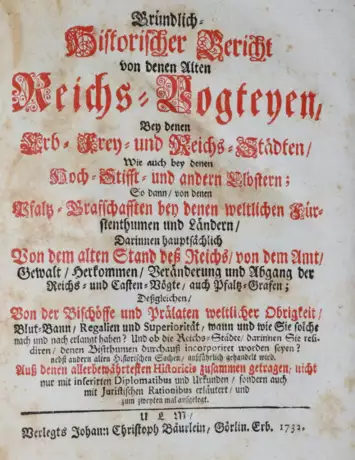 Gründlich-
Historischer Bericht
von denen Alten
Reichs-Vogteyen/
Bey denen
Erb- Frey- und Reichs-Städten/
Wie auch bey denen
Hoch-Stifft- und andern Clöstern;
So dann/ von denen
Pfaltz-Grafschafften bey denen weltlichen Für-
stenthumen und Ländern/
Darinnen hauptsächlich
Von dem alten Stand deß Reichs/ von dem Amt/
Gewalt/ Herkommen/ Veränderung und Abgang der
Reichs- und Casten-Vögte/ auch Pfaltz-Grafen;
Deßgleichen/
Von der Bischöffe und Prälaten weltlicher Obrigkeit/
Blut-Bann/ Regalien und Superiorität/ wann und wie Sie solche
nach und nach erlangt haben? Und ob die Reichs-Städte/ darinnen Sie resi-
diren/ denen Bistthumen durchauß incorporirt worden seyen?
nebst andern alten Historischen Sachen/ außführlich gehandelt wird.
Auß denen allerbewährtesten Historicis zusammen getragen/ nicht
nur mit inserirten Diplomatibus und Urkunden/ sondern auch
mit Juristischen Rationibus erläutert/ und
zum zweyten mal aufgelegt.
ULM/
Verlegts Johann Christoph Bäurlein/ Görlin. Erb. 1732.